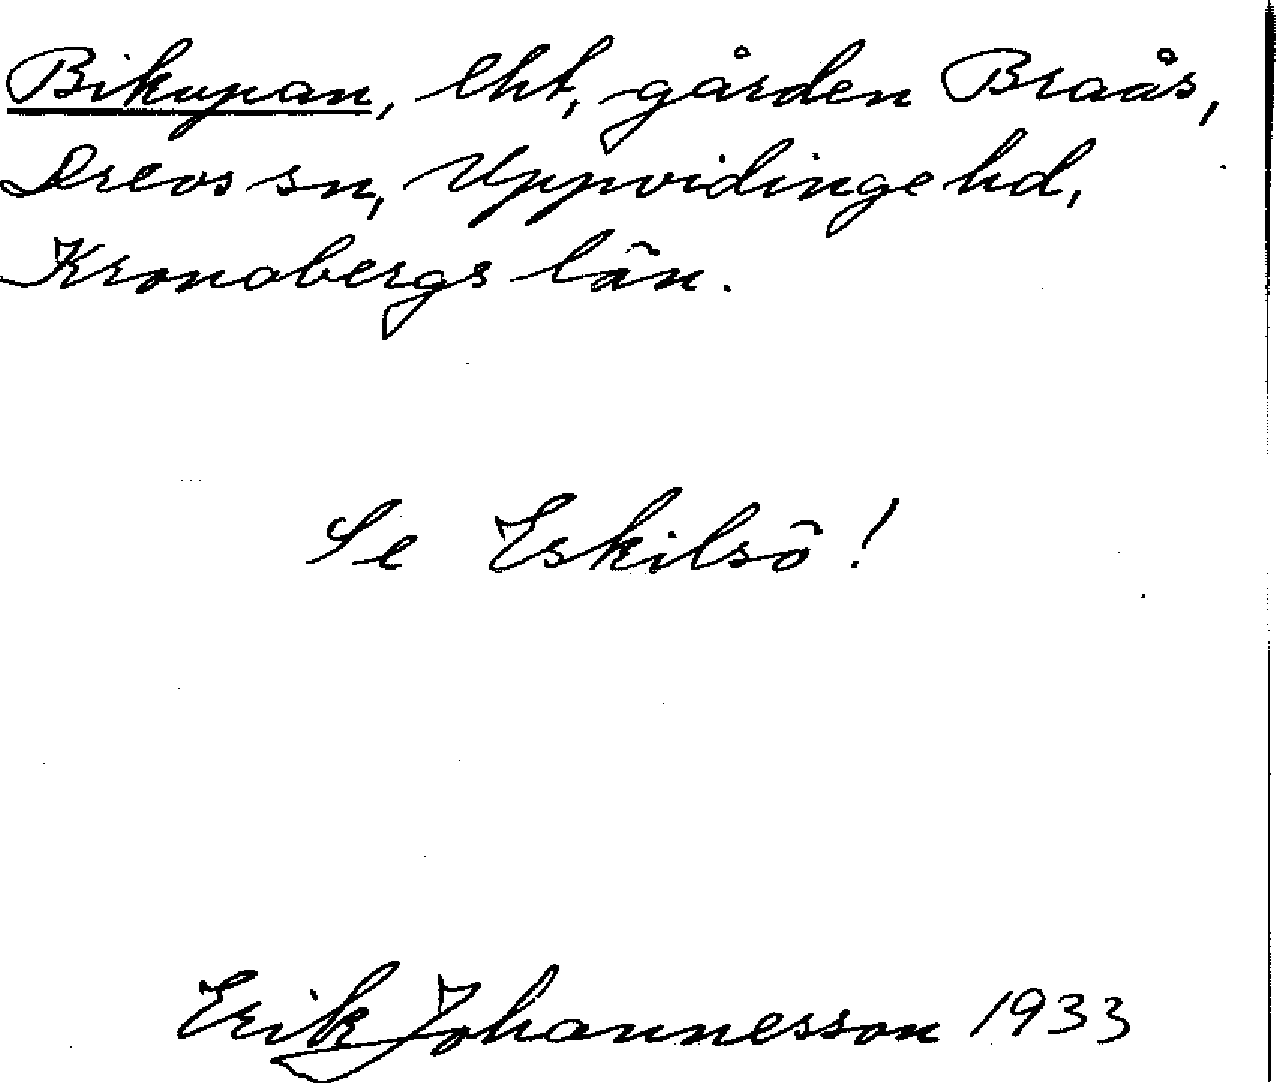 Bikupan, lht, gården Braås,
Drevs sn, Uppvidinge hd,
Kronobergs län.
Se Eskilsö!
Erik Johannesson 1933